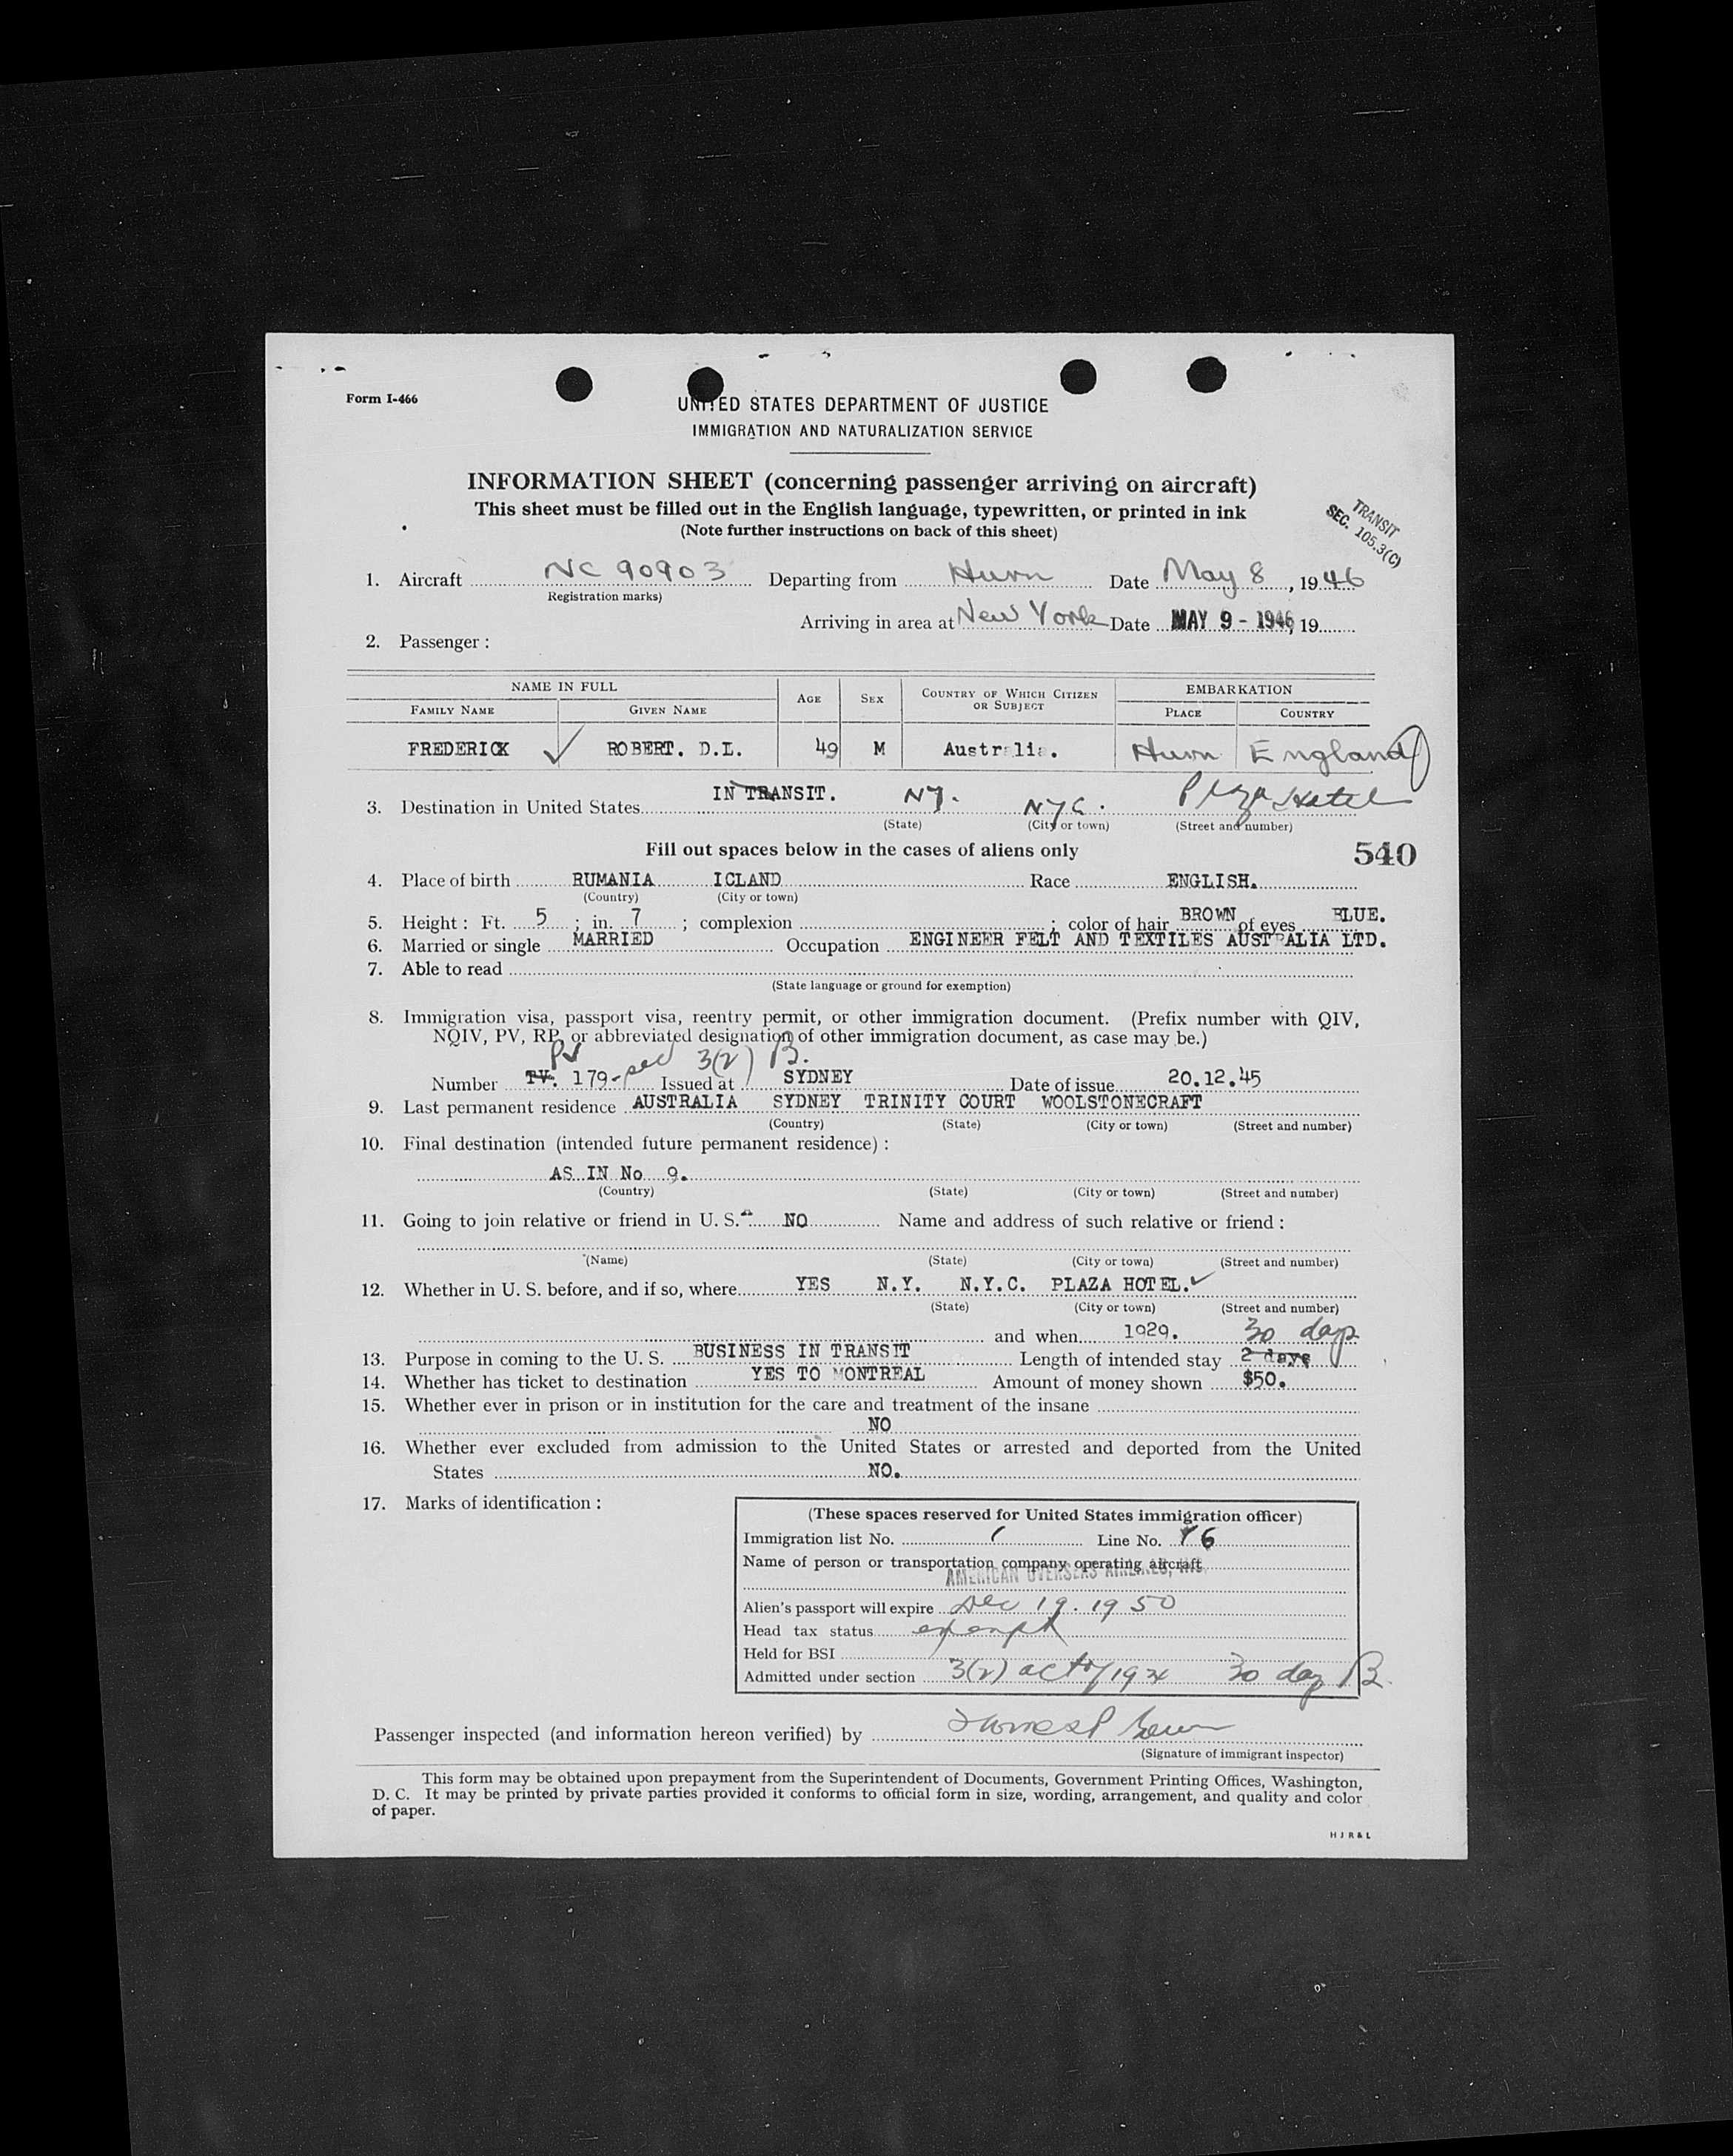 Form I-466
UNITED STATES DEPARTMENT OF JUSTICE
IMMIGRATION AND NATURALIZATION SERVICE
INFORMATION SHEET (concerning passenger arriving on aircraft)
This sheet must be filled out in the English language, typewritten, or printed in ink
(Note further instructions on back of this sheet)
TRANSIT
SEC. 105.3(C)
1. Aircraft NC 90903 Departing from Hurn Date May 8, 1946
Registration marks)
Arriving in area at New York Date MAY 9 - 1946, 19
2. Passenger :
NAME IN FULL AGE SEX COUNTRY OF WHICH CITIZEN OR SUBJECT EMBARKATION
FAMILY NAME GIVEN NAME PLACE COUNTRY
FREDERICK ROBERT. D.L. 49 M Australia. Hurn England
3. Destination in United States IN TRANSIT. NY. NYC. Plaza Hotel
(State) (City or town) (Street and number)
Fill out spaces below in the cases of aliens only
540
4. Place of birth RUMANIA ICLAND Race ENGLISH.
(Country) (City or town)
5. Height : Ft. 5 ; in. 7 ; complexion ; color of hair BROWN of eyes BLUE.
6. Married or single MARRIED Occupation ENGINEER FELT AND TEXTILES AUSTRALIA LTD.
7. Able to read
(State language or ground for exemption)
8. Immigration visa, passport visa, reentry permit, or other immigration document. (Prefix number with QIV,
NQIV, PV, RP, or abbreviated designation of other immigration document, as case may be.)
PV sec 3(2) B.
Number TV. 179- Issued at SYDNEY Date of issue 20.12.45
9. Last permanent residence AUSTRALIA SYDNEY TRINITY COURT WOOLSTONECRAFT
(Country) (State) (City or town) (Street and number)
10. Final destination (intended future permanent residence) :
AS IN No 9.
(Country) (State) (City or town) (Street and number)
11. Going to join relative or friend in U. S. NO Name and address of such relative or friend :
(Name) (State) (City or town) (Street and number)
12. Whether in U. S. before, and if so, where YES N.Y. N.Y.C. PLAZA HOTEL.
(State) (City or town) (Street and number)
and when 1929. 30 days
13. Purpose in coming to the U. S. BUSINESS IN TRANSIT Length of intended stay 2 days
14. Whether has ticket to destination YES TO MONTREAL Amount of money shown $50.
15. Whether ever in prison or in institution for the care and treatment of the insane
NO
16. Whether ever excluded from admission to the United States or arrested and deported from the United
States NO.
17. Marks of identification :
(These spaces reserved for United States immigration officer)
Immigration list No. 1 Line No. 6
Name of person or transportation company operating aircraft
AMERICAN OVERSEAS AIRLINES, INC.
Alien's passport will expire Dec 19. 1950
Head tax status exempt
Held for BSI
Admitted under section 3(2) act of 1924 30 day B.
Passenger inspected (and information hereon verified) by
(Signature of immigrant inspector)
This form may be obtained upon prepayment from the Superintendent of Documents, Government Printing Offices, Washington,
D. C. It may be printed by private parties provided it conforms to official form in size, wording, arrangement, and quality and color
of paper.
H J R & L